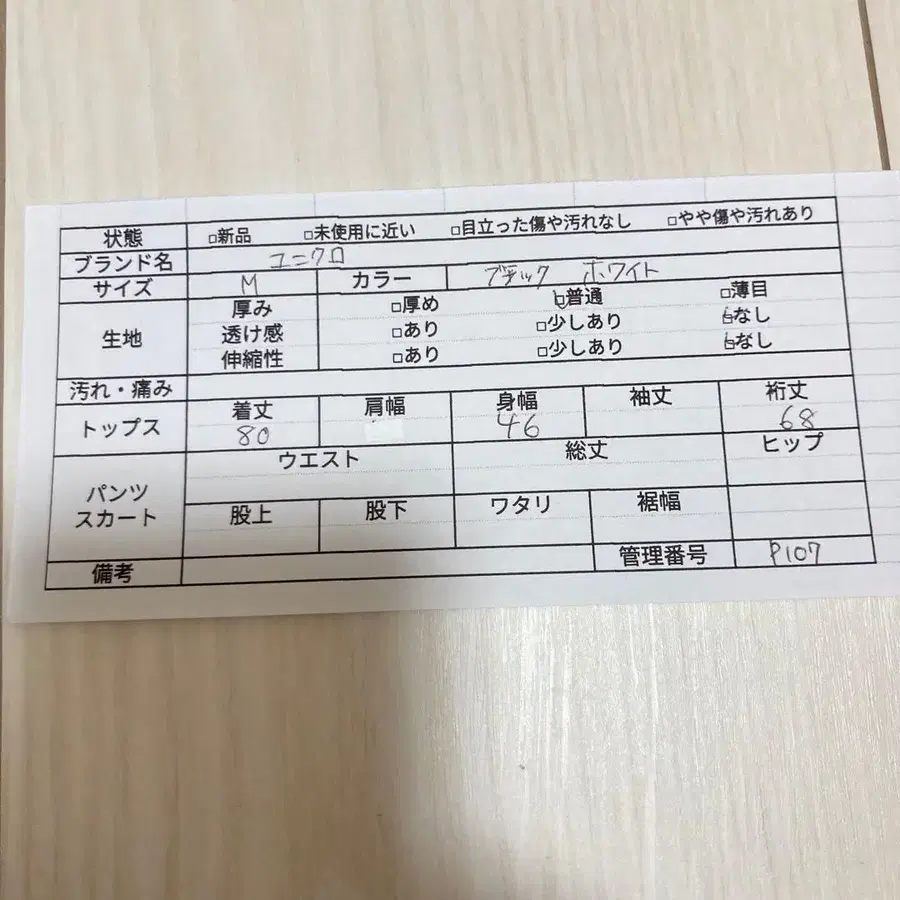 状態 □新品 □未使用に近い □目立った傷や汚れなし □やや傷や汚れあり
ブランド名 ユニクロ
サイズ M カラー ブラック ホワイト
生地 厚み □厚め □普通 □薄目
透け感 □あり □少しあり □なし
伸縮性 □あり □少しあり □なし
汚れ・痛み
トップス 着丈 肩幅 身幅 袖丈 裄丈
80 46 68
パンツ スカート ウエスト 総丈 ヒップ
股上 股下 ワタリ 裾幅
備考 管理番号 P107